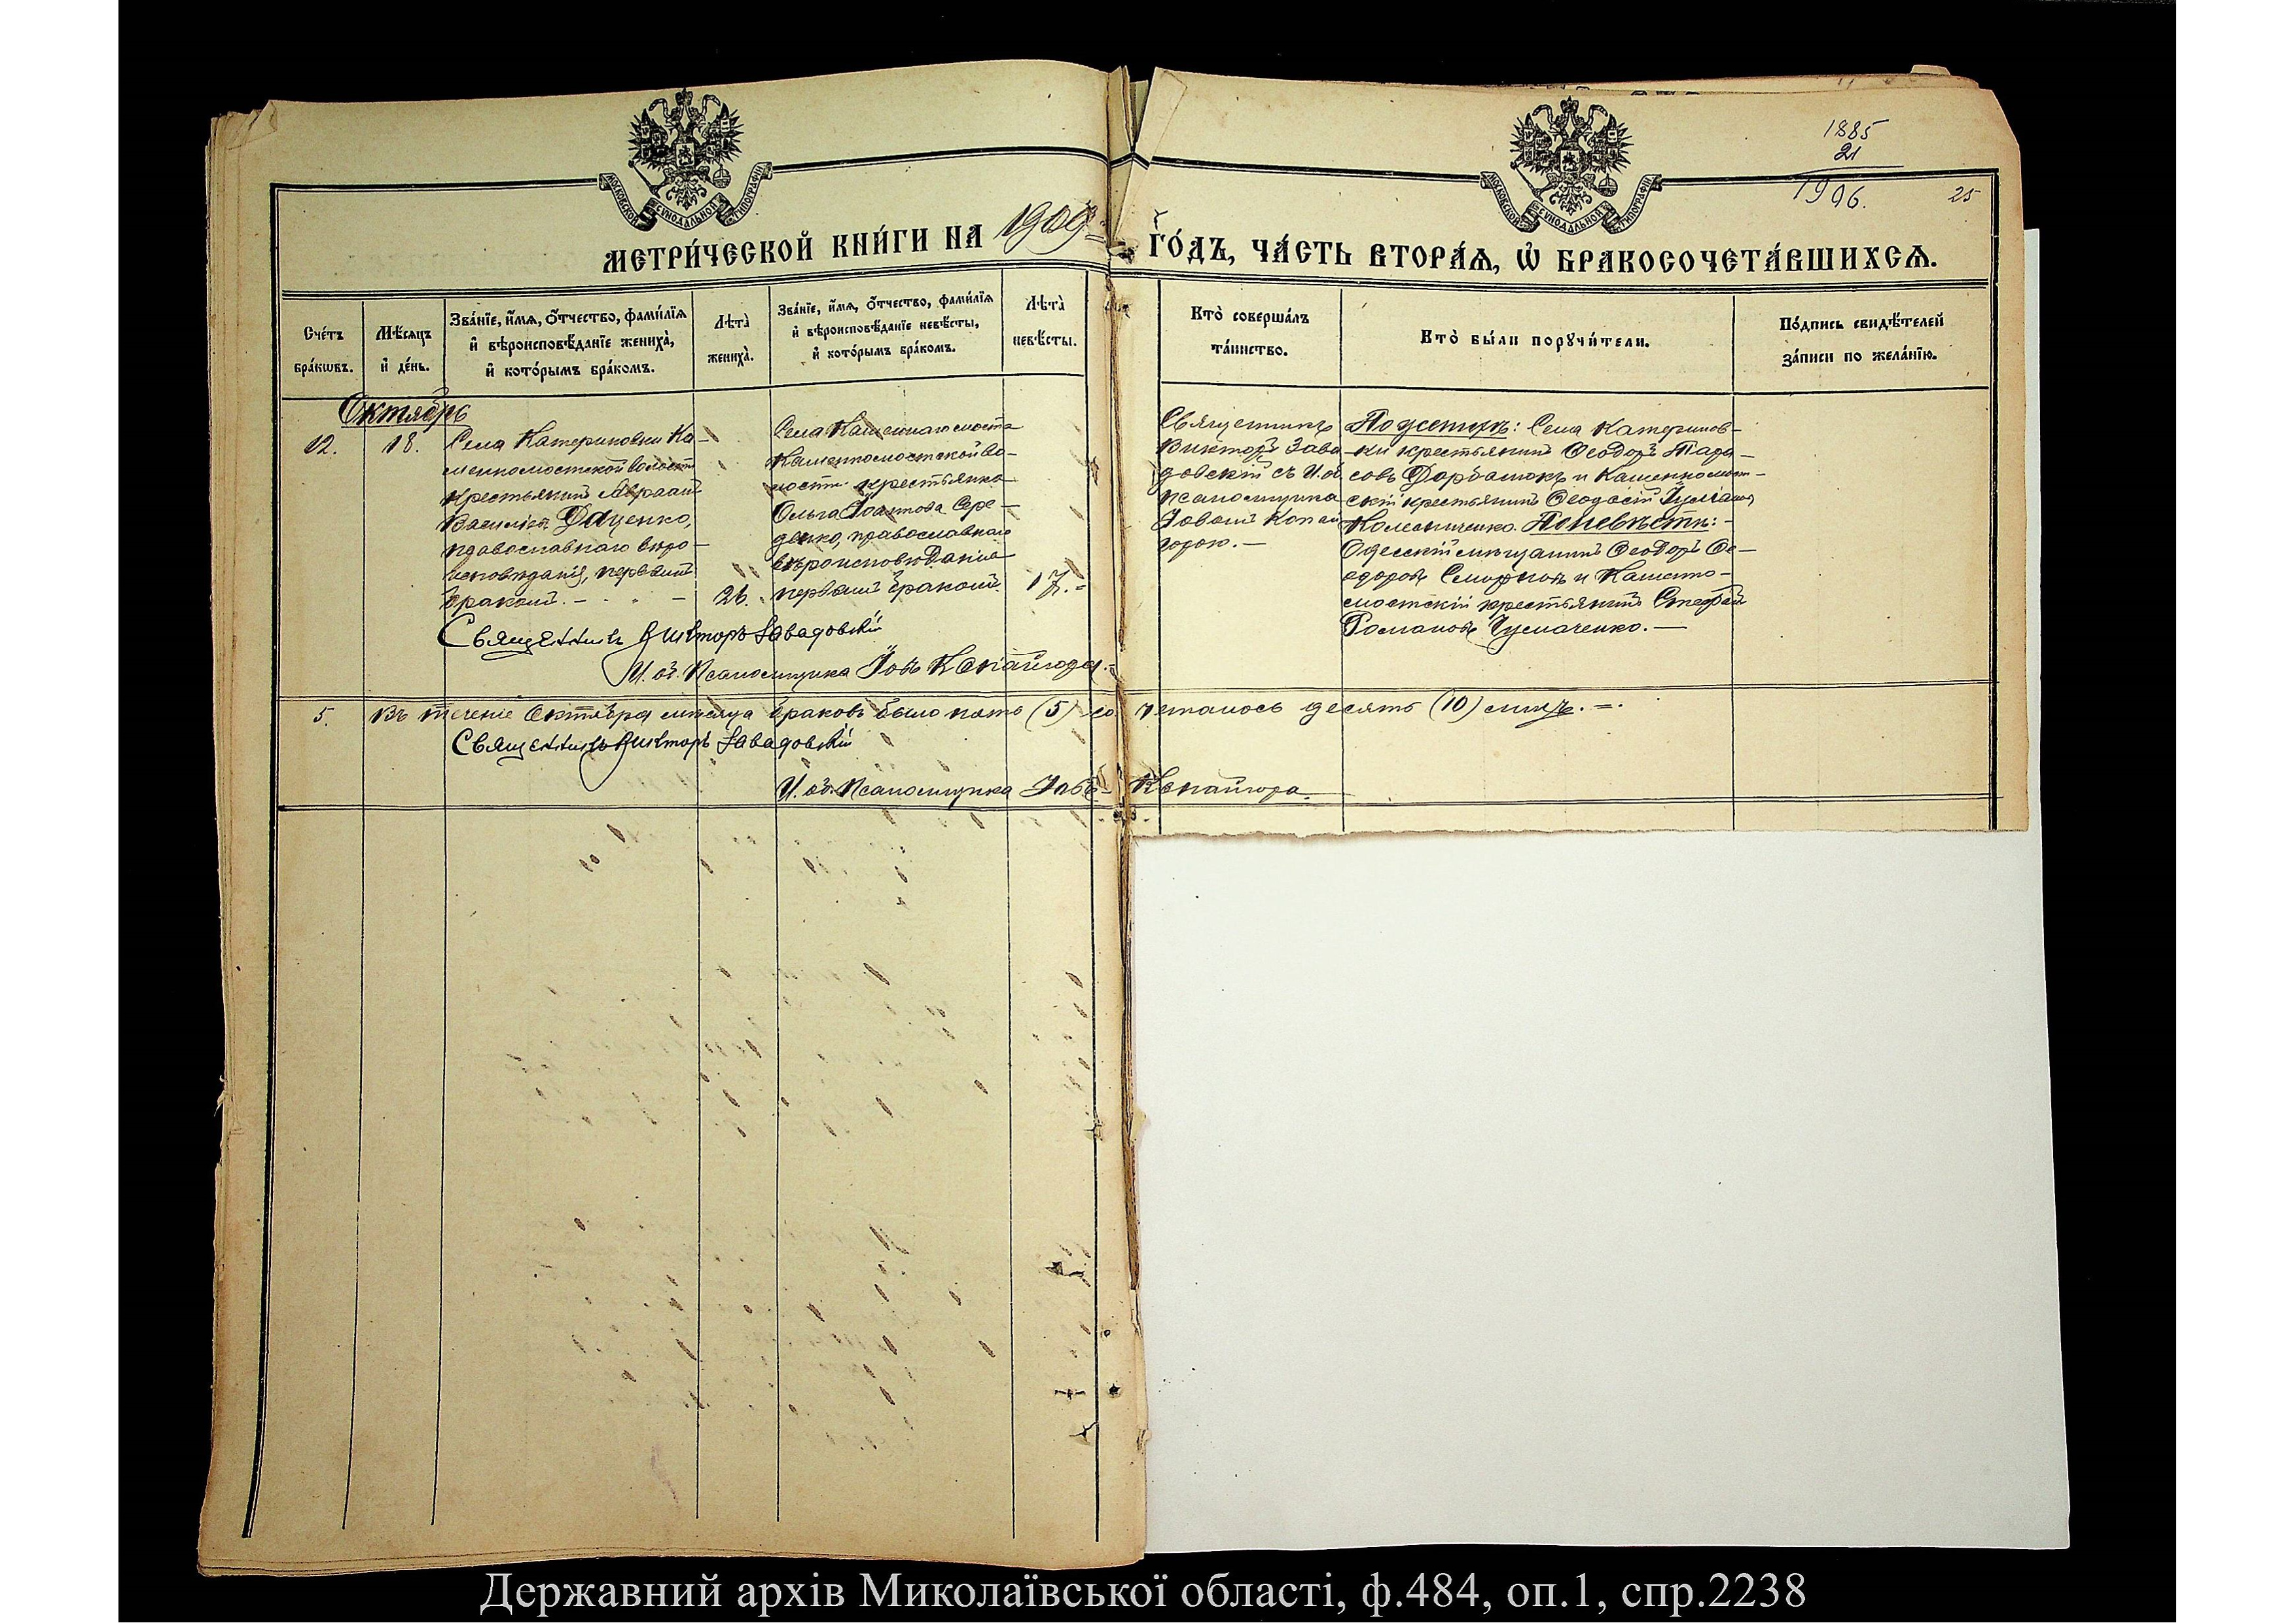 1885
21
1906.
25
МОСКОВСКОЙ СѴНОДАЛЬНОЙ ТИПОГРАФІИ
МОСКОВСКОЙ СѴНОДАЛЬНОЙ ТИПОГРАФІИ
МЕТРИ́ЧЕСКОЙ КНИ́ГИ НА 1909 ГО́ДЪ, ЧА́СТЬ ВТОРА́Ѧ, Ѡ҆ БРАКОСОЧЕТА́ВШИХСѦ.
Сче́тъ
бра́кѡвъ.
Мѣ́сѧцъ
и҆ де́нь.
Зва́нїе, и҆́мѧ, ѻ҆́тчество, фами́лїѧ
и҆ вѣроисповѣ́данїе жениха̀,
и҆ кото́рымъ бра́комъ.
Лѣта̀
жениха̀.
Зва́нїе, и҆́мѧ, ѻ҆́тчество, фами́лїѧ
и҆ вѣроисповѣ́данїе невѣ́сты,
и҆ кото́рымъ бра́комъ.
Лѣта̀
невѣ́сты.
Кто̀ соверша́лъ
та́инство.
Кто̀ бы́ли порꙋчи́тели.
По́дпись свидѣ́телей
за́писи по жела́нїю.
Октябрь
12.
18.
Села Катериновки Ка-
менномостской волости
крестьянинъ Авраамъ
Василіевъ Даценко,
православнаго вѣро-
исповѣданія, первымъ
бракомъ. -
26.
Села Каменнаго моста
Каменномостской во-
лости крестьянка
Ольга Іоаннова Сере-
денко, православнаго
вѣроисповѣданія
первымъ бракомъ.
17.=
Священникъ
Викторъ Зава
довскій съ И. об
псаломщика
Іовомъ Копай
городою. -
По женихѣ: Села Катеринов-
ки крестьянинъ Ѳеодоръ Тара-
совъ Дорбалюкъ и Каменномост-
скій крестьянинъ Ѳеодосій
Коломиченко. По невѣстѣ: -
Одесскій мѣщанинъ Ѳеодоръ Ѳе-
одоровъ и Каменно-
мостскій крестьянинъ Стефанъ
Романовъ Чумаченко. -
Священникъ Викторъ Завадовскій
И. об. Псаломщика Іовъ Копайгора.
5.
Въ теченіе Октября мѣсяца браковъ было пять (5) со четалось десять (10) лицъ. =.
Священникъ Викторъ Завадовскій
И. об. Псаломщика Іовъ Копайгора.
Державний архів Миколаївської області, ф.484, оп.1, спр.2238